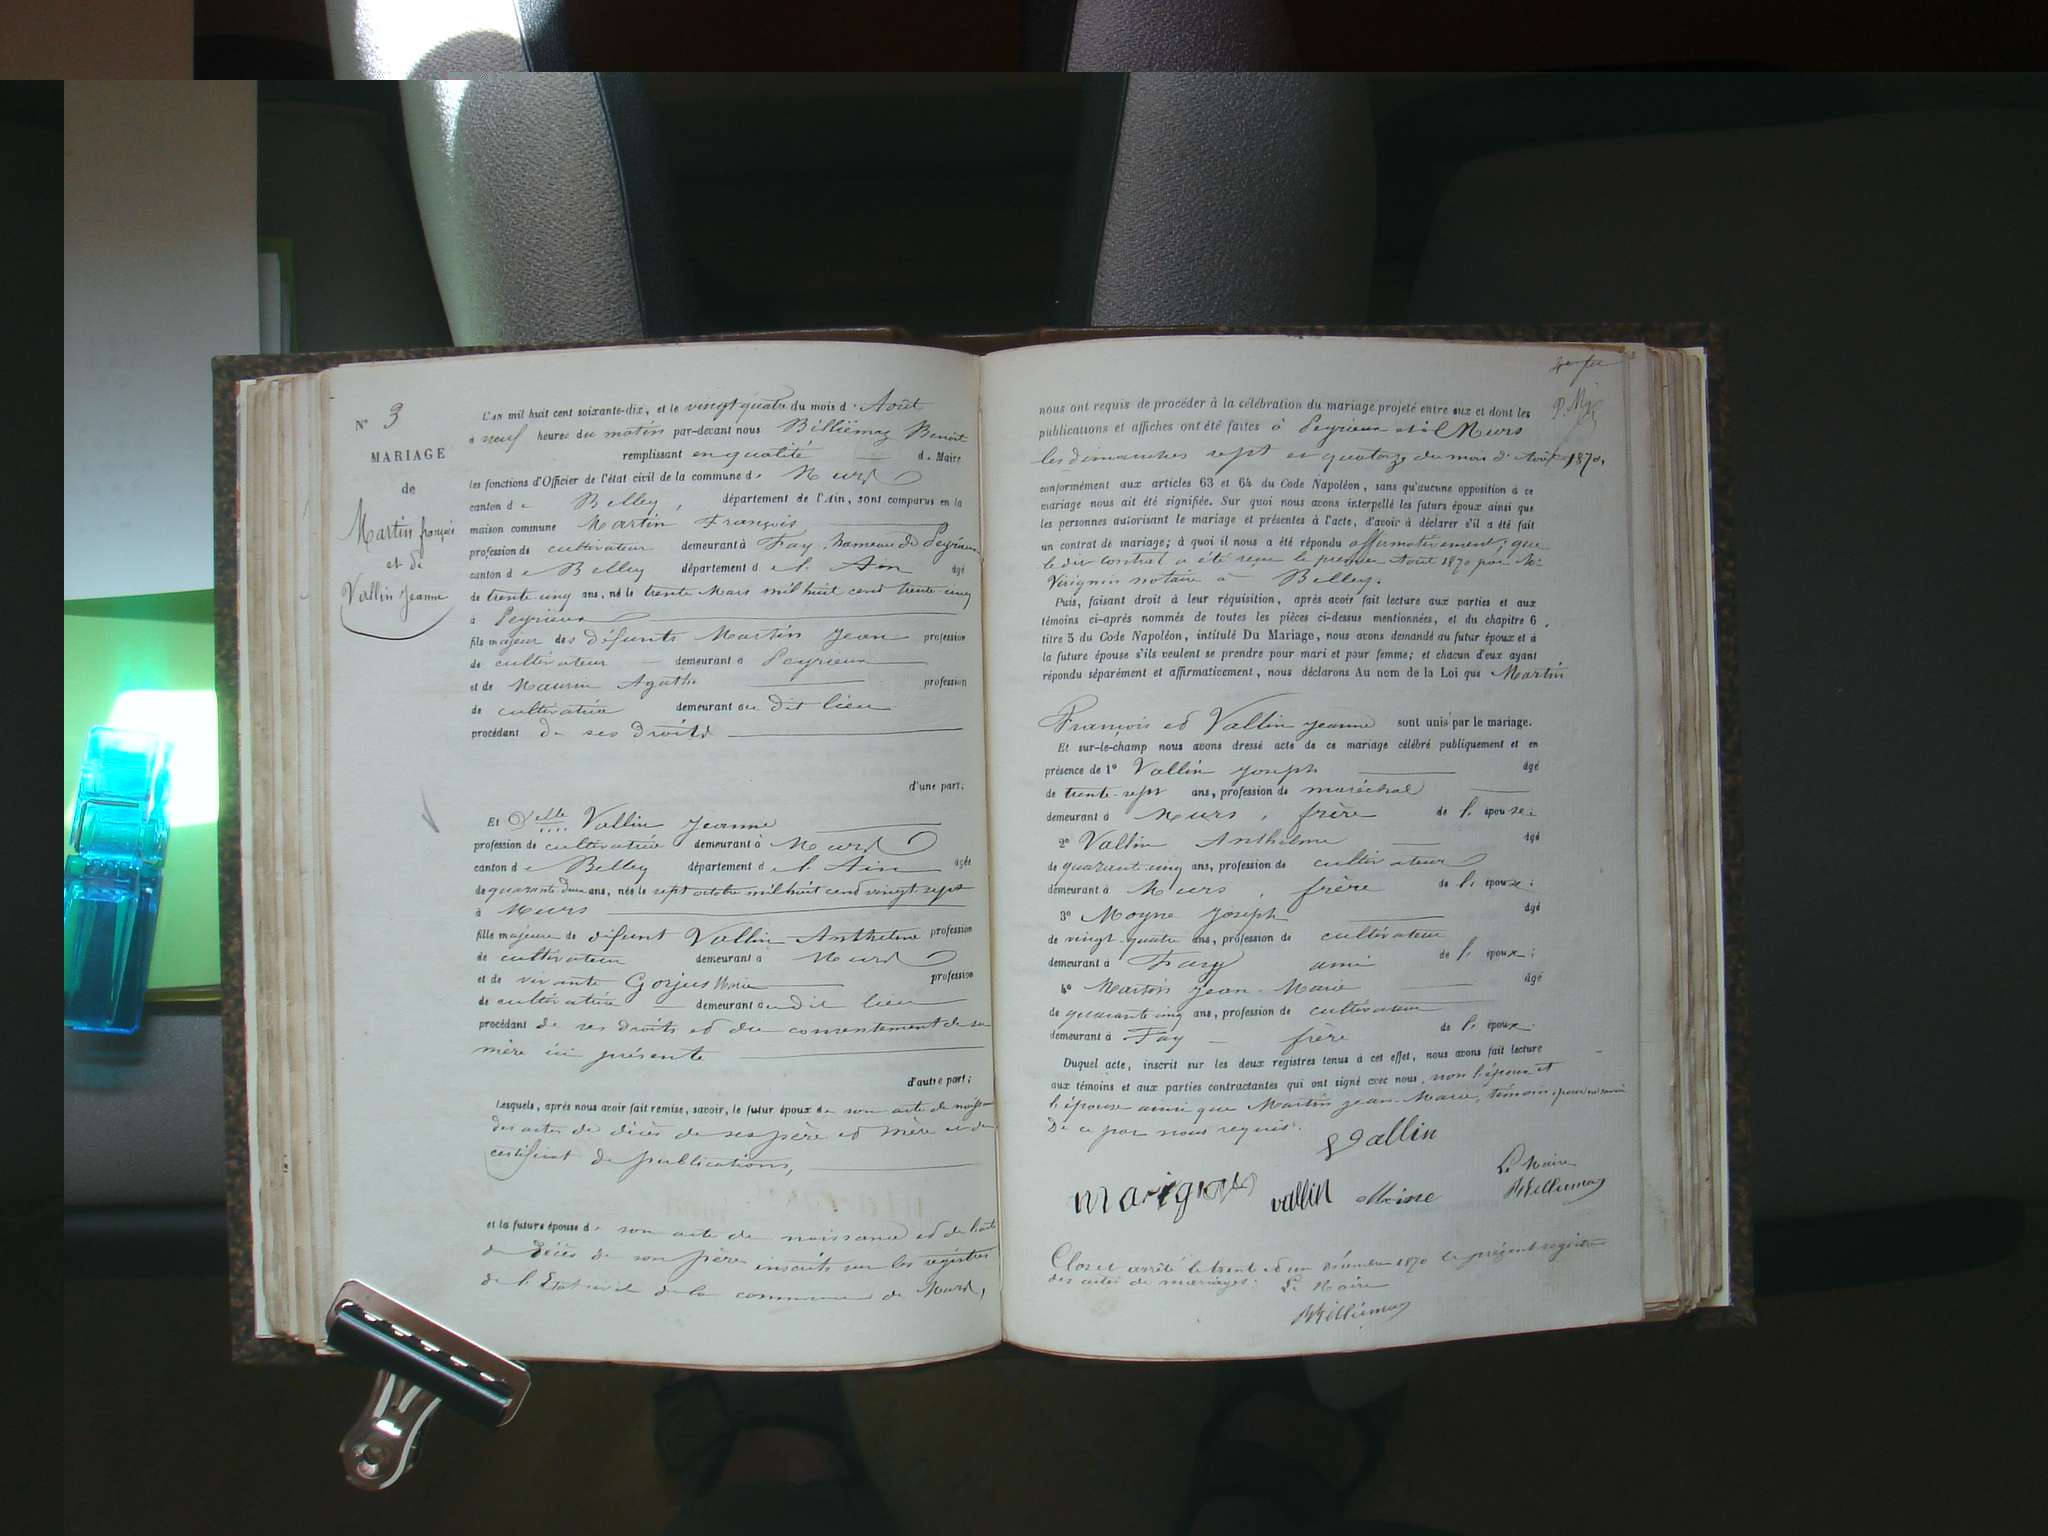 N° 3
MARIAGE
de
Martin françois
et de
Vallin Jeanne
L'an mil huit cent soixante-dix, et le vingt quatre du mois d'Août
à neuf heures du matin par-devant nous Billiémaz Benoît
remplissant en qualité de Maire
les fonctions d'Officier de l'état civil de la commune de Murs
canton de Belley, département de l'Ain, sont comparus en la
maison commune Martin François
profession de cultivateur demeurant à Fay, hameau de Peyrieux
canton de Belley département de l'Ain âgé
de trente-cinq ans, né le trente Mars mil huit cent trente-cinq
à Peyrieux
fils majeur des défunts Martin Jean profession
de cultivateur demeurant à Peyrieux
et de Maurin Agathe profession
de cultivatrice demeurant au dit lieu
procédant de ses droits
d'une part;
Et Delle Vallin Jeanne
profession de cultivatrice demeurant à Murs
canton de Belley département de l'Ain âgée
de quarante deux ans, née le sept octobre mil huit cent vingt sept
à Murs
fille majeure de défunt Vallin Anthelme profession
de cultivateur demeurant à Murs
et de vivante Gorjus Marie profession
de cultivatrice demeurant au dit lieu
procédant de ses droits et du consentement de sa
mère ici présente
d'autre part;
Lesquels, après nous avoir fait remise, savoir, le futur époux de son acte de naissance
des actes de décès de ses père et mère et du
certificat de publications,
et la future épouse de son acte de naissance et de l'acte
de décès de son père inscrits sur les registres
de l'Etat civil de la commune de Murs,
nous ont requis de procéder à la célébration du mariage projeté entre eux et dont les
publications et affiches ont été faites à Peyrieux et à Murs
les dimanches sept et quatorze du mois d'Août 1870,
conformément aux articles 63 et 64 du Code Napoléon, sans qu'aucune opposition à ce
mariage nous ait été signifiée. Sur quoi nous avons interpellé les futurs époux ainsi que
les personnes autorisant le mariage et présentes à l'acte, d'avoir à déclarer s'il a été fait
un contrat de mariage; à quoi il nous a été répondu affirmativement; que
le dit contrat a été reçu le premier Août 1870 par Me
notaire à Belley.
Puis, faisant droit à leur réquisition, après avoir fait lecture aux parties et aux
témoins ci-après nommés de toutes les pièces ci-dessus mentionnées, et du chapitre 6
titre 5 du Code Napoléon, intitulé Du Mariage, nous avons demandé au futur époux et à
la future épouse s'ils veulent se prendre pour mari et pour femme; et chacun d'eux ayant
répondu séparément et affirmativement, nous déclarons Au nom de la Loi que Martin
François et Vallin Jeanne sont unis par le mariage.
Et sur-le-champ nous avons dressé acte de ce mariage célébré publiquement et en
présence de 1° Vallin Joseph âgé
de trente-sept ans, profession de maréchal
demeurant à Murs, frère de l'épouse;
2° Vallin Anthelme âgé
de quarante-cinq ans, profession de cultivateur
demeurant à Murs, frère de l'épouse;
3° Moyne Joseph âgé
de vingt-quatre ans, profession de cultivateur
demeurant à Fay ami de l'époux;
4° Martin Jean-Marie âgé
de quarante cinq ans, profession de cultivateur
demeurant à Fay frère de l'époux.
Duquel acte, inscrit sur les deux registres tenus à cet effet, nous avons fait lecture
aux témoins et aux parties contractantes qui ont signé avec nous, non l'époux et
l'épouse ainsi que Martin Jean-Marie, témoin,
De ce par nous requis.
Vallin
vallin Moine
Le Maire
BBilliemaz
Clos et arrêté le trent et un décembre 1870 le présent registre
des actes de mariages.
Le Maire
BBilliemaz